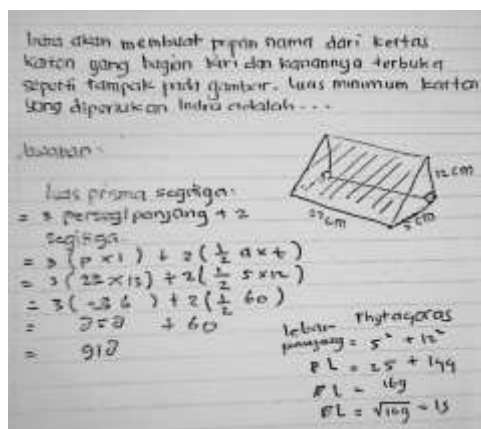 Indra akan membuat papan nama dari kertas
karton yang bagian kiri dan kanannya terbuka
seperti tampak pada gambar. luas minimum karton
yang diperlukan Indra adalah...
Jawaban:
luas prisma segitiga:
= 3 persegi panjang + 2
segitiga
= 3 (P x l) + 2 (1/2 a x t)
= 3 (22 x 13) + 2 (1/2 5 x 12)
= 3 (286) + 2 (1/2 60)
= + 60
=
12 cm
cm
5 cm
Phytagoras
lebar
panjang = 5² + 12²
PL = 25 + 144
PL = 169
PL = √169 = 13